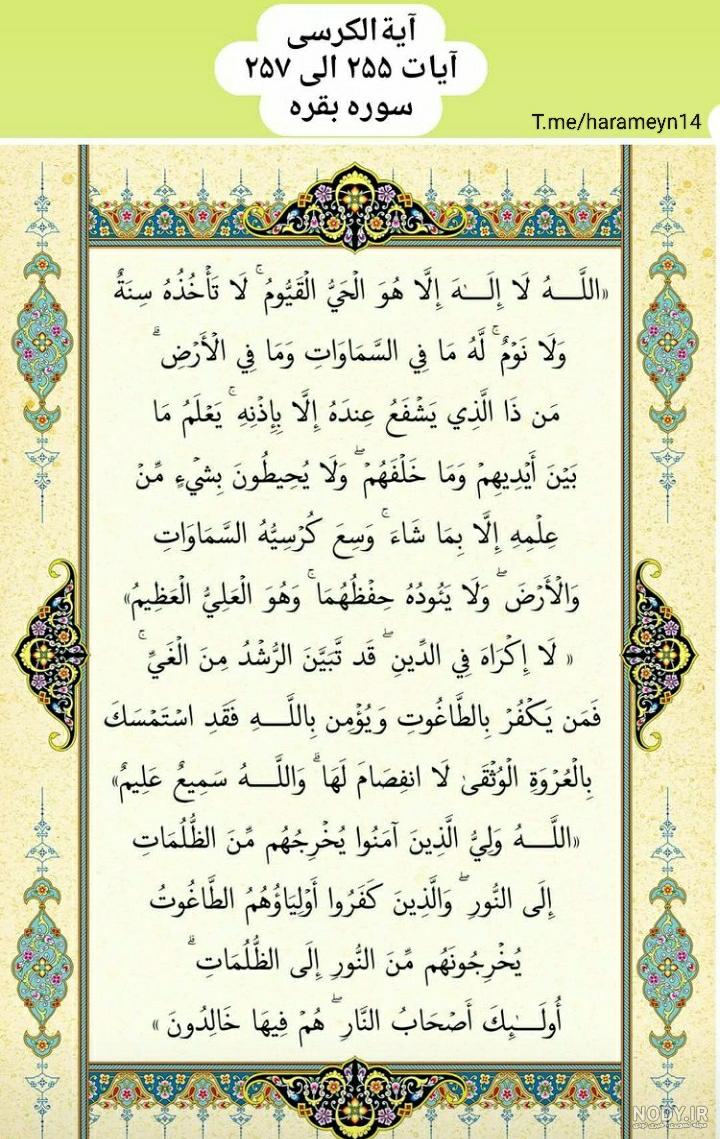 آیة الکرسی
آیات ۲۵۵ الی ۲۵۷
سوره بقره
T.me/harameyn14
«اللَّـهُ لَا إِلَـٰهَ إِلَّا هُوَ الْحَيُّ الْقَيُّومُ ۚ لَا تَأْخُذُهُ سِنَةٌ
وَلَا نَوْمٌ ۚ لَّهُ مَا فِي السَّمَاوَاتِ وَمَا فِي الْأَرْضِ ۗ
مَن ذَا الَّذِي يَشْفَعُ عِندَهُ إِلَّا بِإِذْنِهِ ۚ يَعْلَمُ مَا
بَيْنَ أَيْدِيهِمْ وَمَا خَلْفَهُمْ ۖ وَلَا يُحِيطُونَ بِشَيْءٍ مِّنْ
عِلْمِهِ إِلَّا بِمَا شَاءَ ۚ وَسِعَ كُرْسِيُّهُ السَّمَاوَاتِ
وَالْأَرْضَ ۖ وَلَا يَئُودُهُ حِفْظُهُمَا ۚ وَهُوَ الْعَلِيُّ الْعَظِيمُ»
« لَا إِكْرَاهَ فِي الدِّينِ ۖ قَد تَّبَيَّنَ الرُّشْدُ مِنَ الْغَيِّ ۚ
فَمَن يَكْفُرْ بِالطَّاغُوتِ وَيُؤْمِن بِاللَّـهِ فَقَدِ اسْتَمْسَكَ
بِالْعُرْوَةِ الْوُثْقَىٰ لَا انفِصَامَ لَهَا ۗ وَاللَّـهُ سَمِيعٌ عَلِيمٌ»
«اللَّـهُ وَلِيُّ الَّذِينَ آمَنُوا يُخْرِجُهُم مِّنَ الظُّلُمَاتِ
إِلَى النُّورِ ۖ وَالَّذِينَ كَفَرُوا أَوْلِيَاؤُهُمُ الطَّاغُوتُ
يُخْرِجُونَهُم مِّنَ النُّورِ إِلَى الظُّلُمَاتِ ۗ
أُولَـٰئِكَ أَصْحَابُ النَّارِ ۖ هُمْ فِيهَا خَالِدُونَ »
NODY.IR